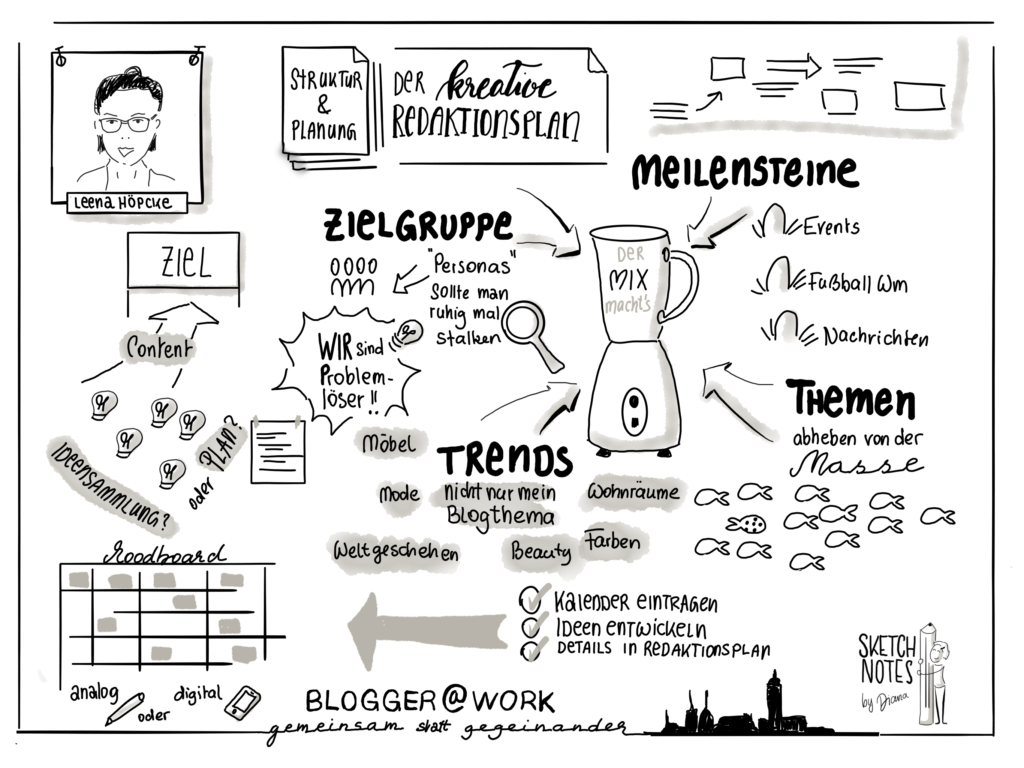 STRUKTUR
&
PLANUNG
DER kreative
REDAKTIONSPLAN
Leena Höpcke
MEILENSTEINE
Events
Fußball Wm
Nachrichten
ZIEL
Content
IDEENSAMMLUNG?
oder PLAN?
ZIELGRUPPE
"Personas"
Sollte man
ruhig mal
stalken
WIR sind
Problem-
löser!!
DER
MIX
macht's
THEMEN
abheben von der
Masse
TRENDS
Möbel
Mode
nicht nur mein
Blogthema
Wohnräume
Weltgeschehen
Beauty
Farben
Moodboard
analog
oder
digital
KALENDER EINTRAGEN
IDEEN ENTWICKELN
DETAILS IN REDAKTIONSPLAN
BLOGGER@WORK
gemeinsam statt gegeinander
SKETCH
NOTES
by Diana